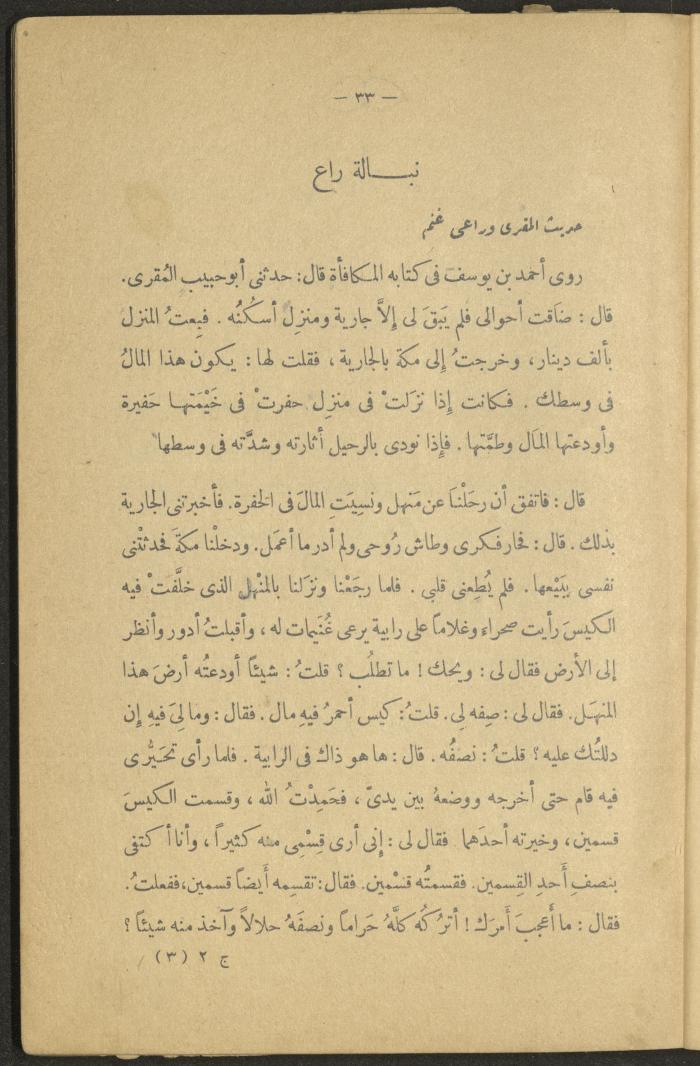 — ٣٣ —
نبـــالة راع
حديث المقرى وراعى غنم
روى أحمد بن يوسف فى كتابه المكافأة قال : حدثنى أبو حبيب المُقرى.
قال : ضاقت أحوالى فلم يَبقَ لى إلاَّ جارية ومنزِل أسكُنُه . فبِعتُ المنزل
بألف دينار، وخرجتُ إلى مكة بالجارية ، فقلت لها : يكون هذا المالُ
فى وسطك . فكانت إذا نزَلتْ فى منزِل حفرتْ فى خَيْمَتها حَفيرة
وأودعتها المال وطمَّتها . فإذا نودى بالرحيل أثارته وشدَّته فى وسطها
قال : فاتفق أن رحَلْنا عن مَنهل ونسِيَتِ المالَ فى الحفرة. فأخبرتنى الجارية
بذلك . قال : فحار فكرى وطاش رُوحى ولم أدر ما أعمَل. ودخلْنا مكةَ فحدثتْنى
نفسى ببَيْعها . فلم يُطِعنى قلبى . فلما رجَعْنا ونزَلنا بالمنْهل الذى خلَّفتْ فيه
الكيسَ رأيت صحراء وغلاماً على رابية يرعى غُنَيمات له ، وأقبلتُ أدور وأنظر
إلى الأرض فقال لى : ويحك ! ما تطلُب ؟ قلتُ : شيئاً أودعتُه أرضَ هذا
المنهَل. فقال لى : صِفه لِى. قلتُ : كيس أحمرُ فيهِ مال . فقال : وما لِىَ فيهِ إن
دللتُك عليه ؟ قلتُ : نصفُه . قال : ها هو ذاك فى الرابية . فلما رأى تحَيُّرى
فيه قام حتى أخرجه ووضعهُ بين يدىّ ، فحَمِدْتُ الله ، وقسمت الكيسَ
قسمين ، وخيرته أحدَهما فقال لى : إنى أرى قِسْمِى منه كثيراً ، وأنا أكتفى
بنصفِ أَحدِ القِسمين. فقسمتُه قسْمين. فقال : تقسِمه أيضاً قسمين، ففعلتُ.
فقال : ما أعجبَ أمرَك ! أترُكُه كلَّهُ حَراماً ونصفَهُ حلالاً وآخذ منه شيئاً ؟
ج ٢ (٣)